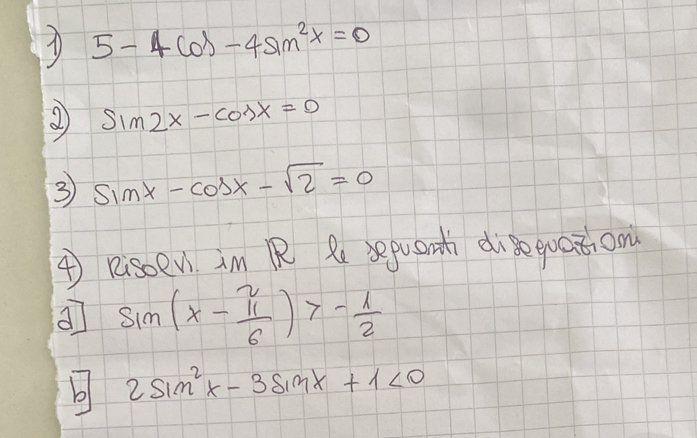 1) 5 - 4 cos - 4 sin²x = 0
2) sin2x - cosx = 0
3) sinx - cosx - √2 = 0
4) Risolvi in ℝ le seguenti disequazioni
a] sin(x - π/6) > - 1/2
b] 2 sin²x - 3 sinx + 1 < 0